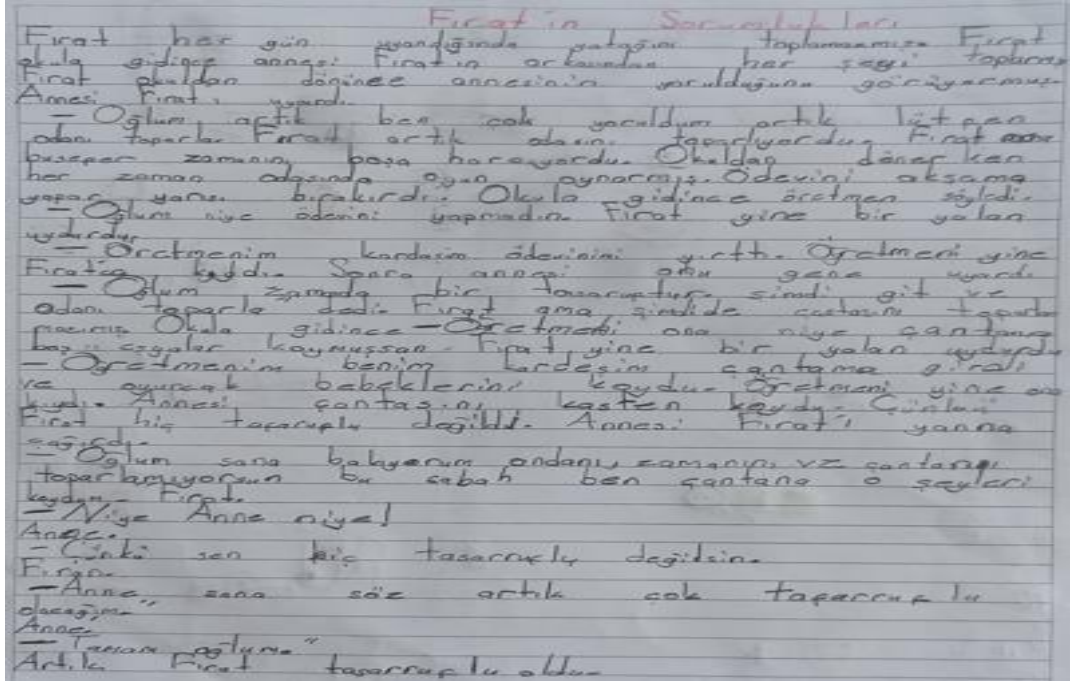 Fırat'ın Sorumlulukları
Fırat her gün uyandığında yatağını toplamazmış. Fırat
okula gidince annesi Fırat'ın arkasından her şeyi toplarmış
Fırat okuldan dönünce annesinin yorulduğunu görüyormuş.
Annesi Fırat'ı uyardı.
— Oğlum artık ben çok yoruldum artık lütfen
odanı toparla. Fırat artık odasını toparlıyordu. Fırat
zamanını boşa harcıyordu. Okuldan dönerken
her zaman odasında oyun oynarmış. Ödevini akşama
yapar yarıe bırakırdı. Okula gidince öretmen söyledi.
— Oğlum niye ödevini yapmadın. Fırat yine bir yalan
uydurdu
— Öretmenim kardaşım ödevinimi yırttı. Öğretmeni yine
Fırat'ın kızdı. Sonra annesi onu gene uyardı
— Oğlum zamanda bir tasaruftur. şimdi git ve
odanı toparla dedi. Fırat ama şimdide çantasını toparla
Okula gidince — Öğretmeni ona niye çantana
bazı eşyalar koymuşsan. Fırat yine bir yalan uydurdu
— Öğretmenim benim kardeşim çantama girdi
ve oyuncak bebeklerini koydu. Öğretmeni yine ona
kızdı. Annesi çantasını kasten koydu. Çünkü
Fırat hiç tasaruflu değildi. Annesi Fırat'ı yanına
çağırdı.
— Oğlum sana bakıyorum odanı, zamanını ve çantanı
toparlamıyorsun bu sabah ben çantana o şeyleri
koydum. Fırat.
— Niye Anne niye!
Anne.
— Çünkü sen hiç tasarruflu değilsin.
Fıran.
— Anne sana söz artık çok tasarruflu
olacağım."
Anne.
— Tamam oğlum."
Artık Fırat tasarruflu oldu.